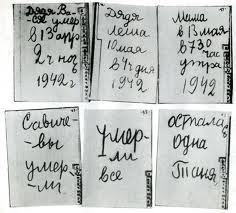 Дядя Ва-
ся умер
в 13 апр
2 ч ноч
1942 г
Дядя
Леша
10 мая
в 4 ч дня
1942
Мама
в 13 мая
в 7 30
час
утра
1942
Савиче-
вы
умер-
ли.
Умер-
ли
все
Остала
одна
Таня